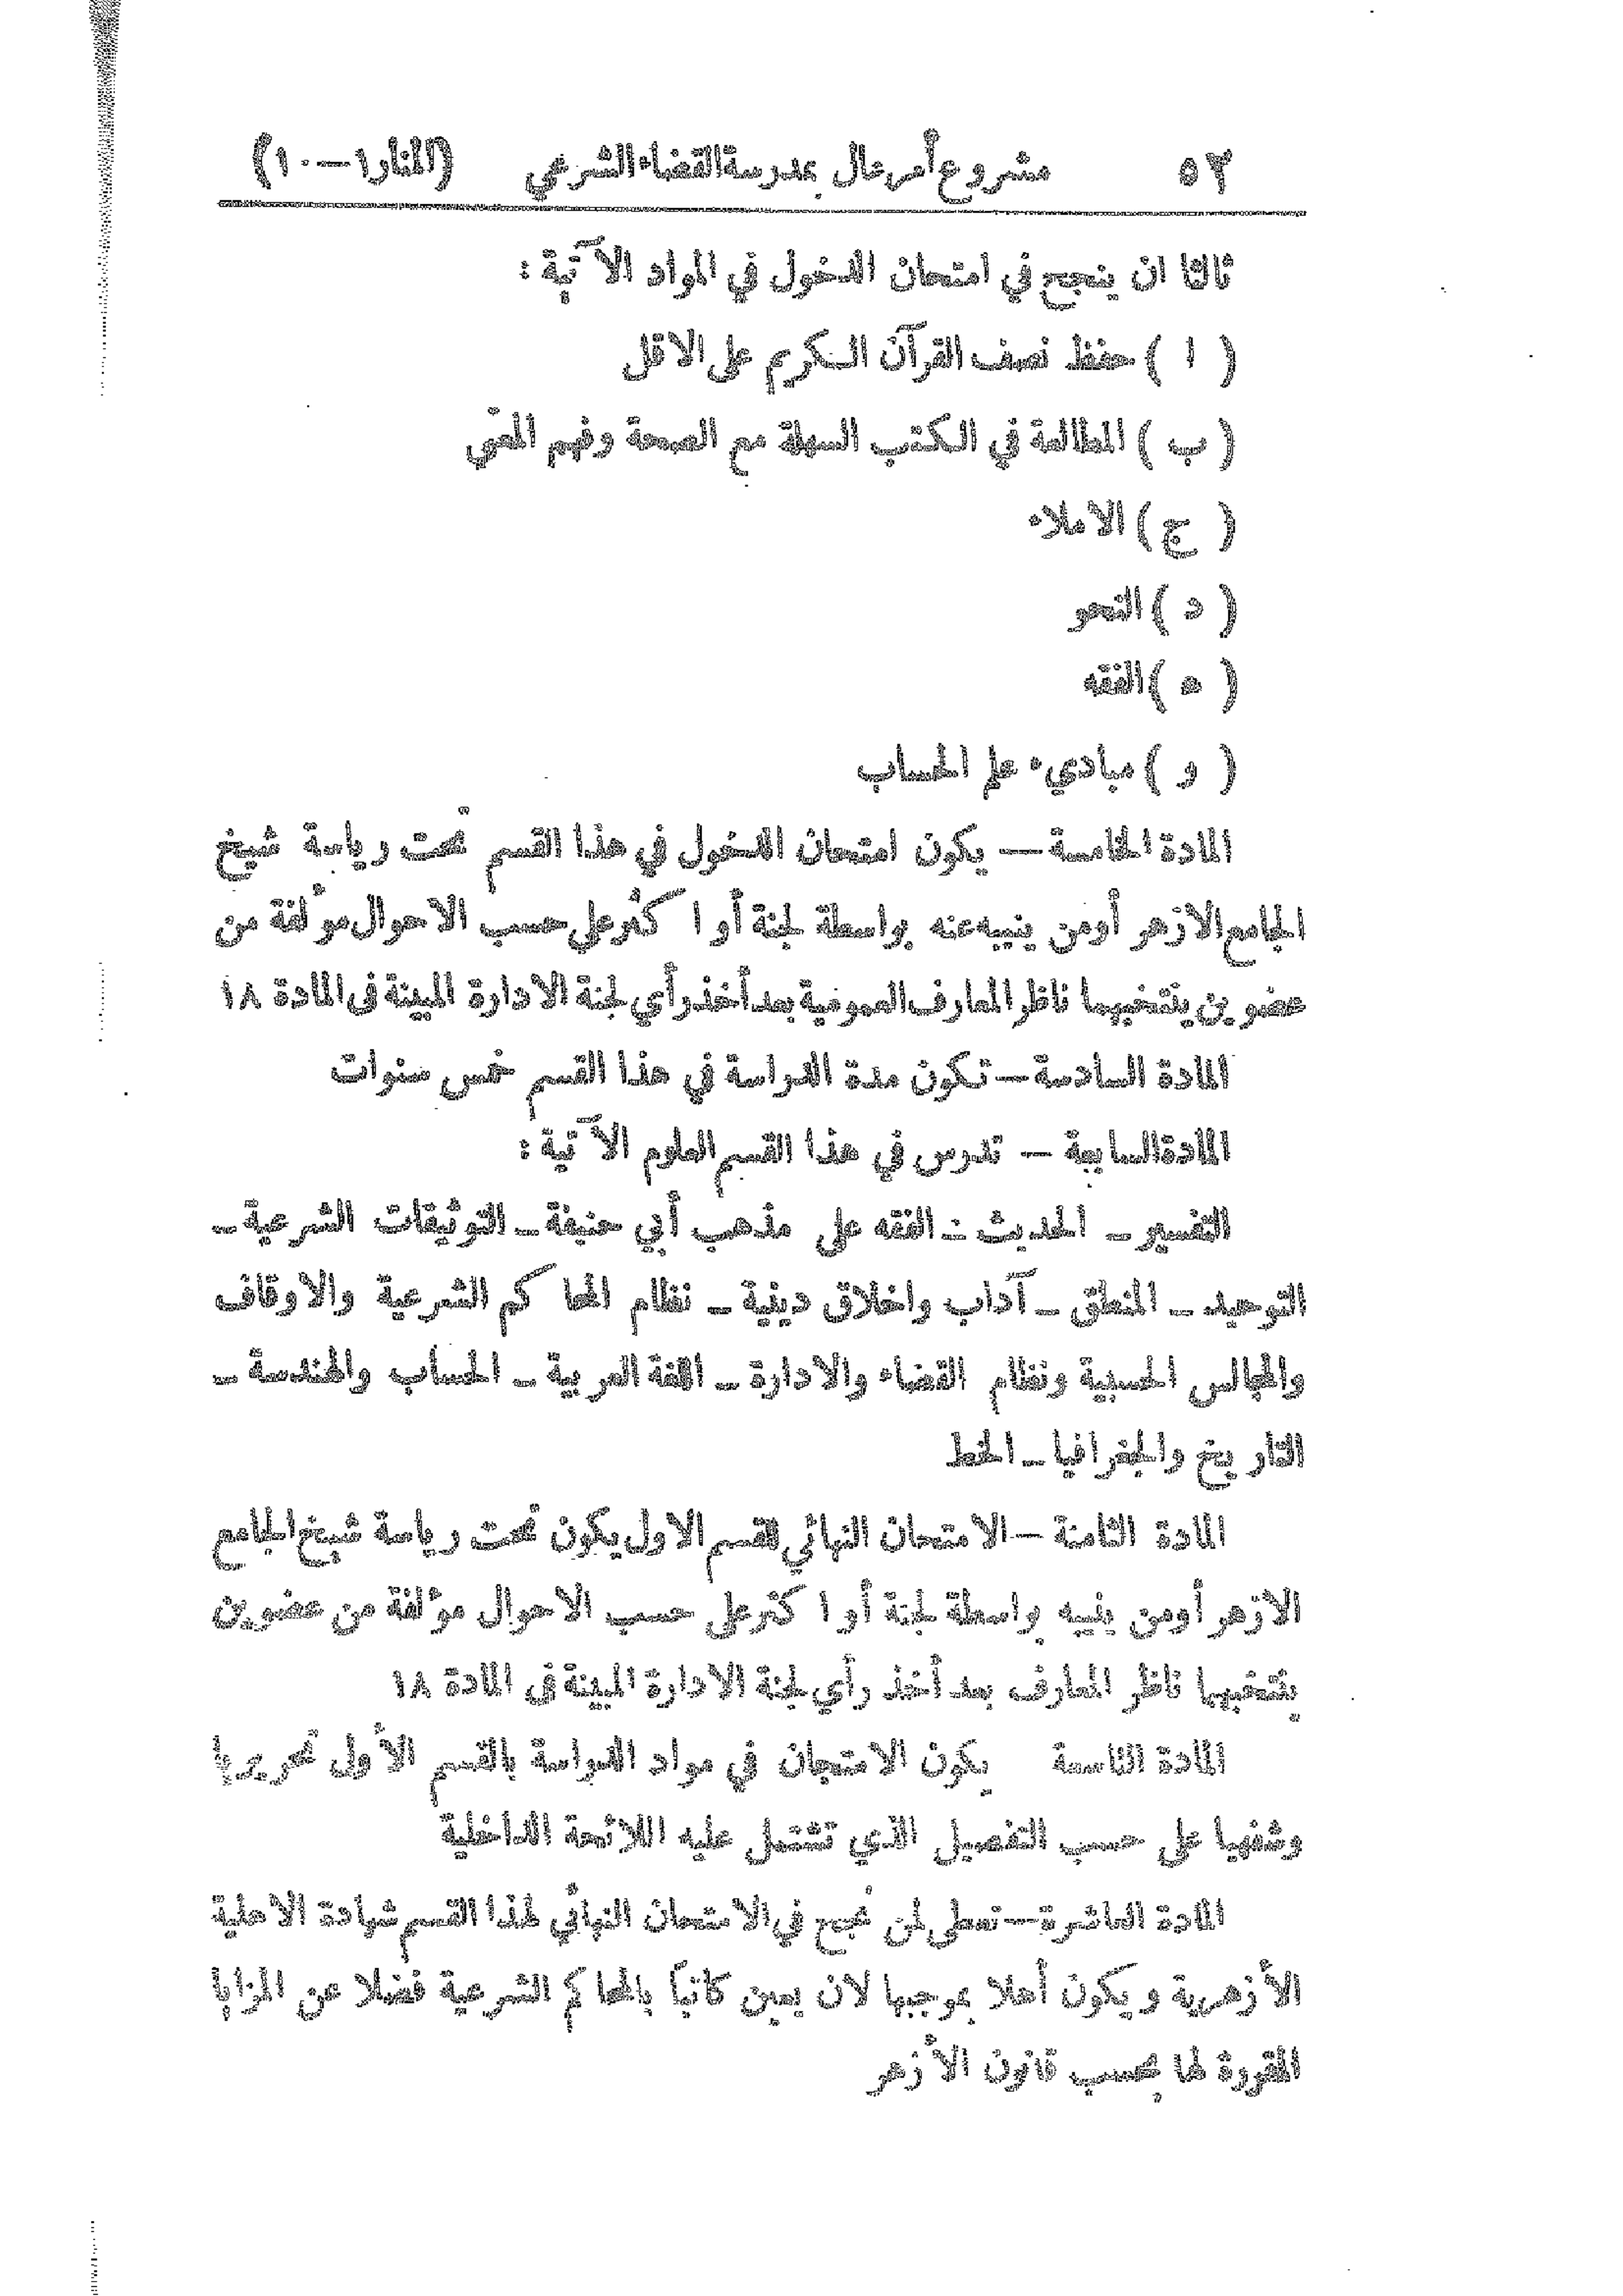 ٥٢ مشروع أمر عال بمدرسة القضاء الشرعي (المنار ١ — ١٠)
ثالثا ان ينجح في امتحان الدخول في المواد الآتية :
( ا ) حفظ نصف القرآن الكريم على الاقل
( ب ) المطالعة في الكتب السهلة مع الصحة وفهم المعنى
( ج ) الاملاء
( د ) النحو
( ه ) الفقه
( و ) مباديء علم الحساب
المادة الخامسة — يكون امتحان الدخول في هذا القسم تحت رياسة شيخ
الجامع الازهر أومن ينيبه عنه بواسطة لجنة أو اكثر على حسب الاحوال مؤلفة من
عضوين ينتخبهما ناظر المعارف العمومية بعد أخذ رأي لجنة الادارة المبينة فى المادة ١٨
المادة السادسة — تكون مدة الدراسة في هذا القسم خمس سنوات
المادة السابعة — تدرس في هذا القسم العلوم الآتية :
التفسير – الحديث – الفقه على مذهب أبي حنيفة – التوثيقات الشرعية –
التوحيد – المنطق – آداب واخلاق دينية – نظام المحاكم الشرعية والاوقاف
والمجالس الحسبية ونظام القضاء والادارة – اللغة العربية – الحساب والهندسة –
التاريخ والجغرافيا – الخط
المادة الثامنة — الامتحان النهائي للقسم الاول يكون تحت رياسة شيخ الجامع
الازهر أومن ينيبه بواسطة لجنة أو اكثر على حسب الاحوال مؤلفة من عضوين
ينتخبهما ناظر المعارف بعد أخذ رأي لجنة الادارة المبينة فى المادة ١٨
المادة التاسعة يكون الامتحان في مواد الدراسة بالقسم الأول تحريريا
وشفهيا على حسب التفصيل الذي تشتمل عليه اللائحة الداخلية
المادة العاشرة — تعطى لمن نجح في الامتحان النهائي لهذا القسم شهادة الاهلية
الأزهرية ويكون أهلا بموجبها لان يعين كاتباً بالمحاكم الشرعية فضلا عن المزايا
المقررة لها بحسب قانون الأزهر